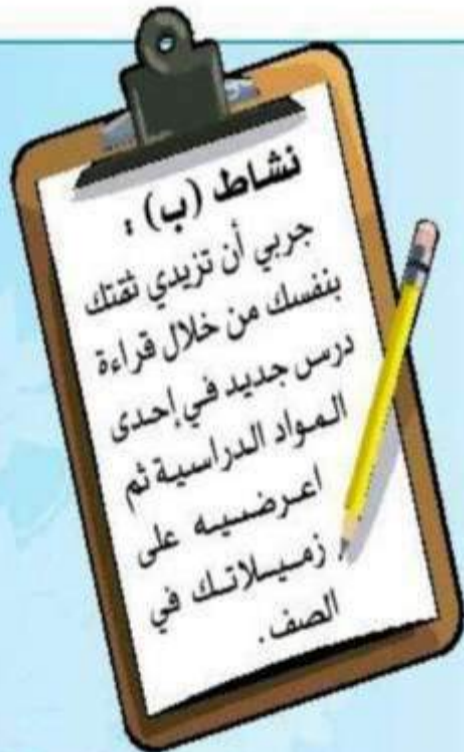 نشاط (ب) :
جربي أن تزيدي ثقتك
بنفسك من خلال قراءة
درس جديد في إحدى
المواد الدراسية ثم
اعرضيه على
زميلاتك في
الصف.